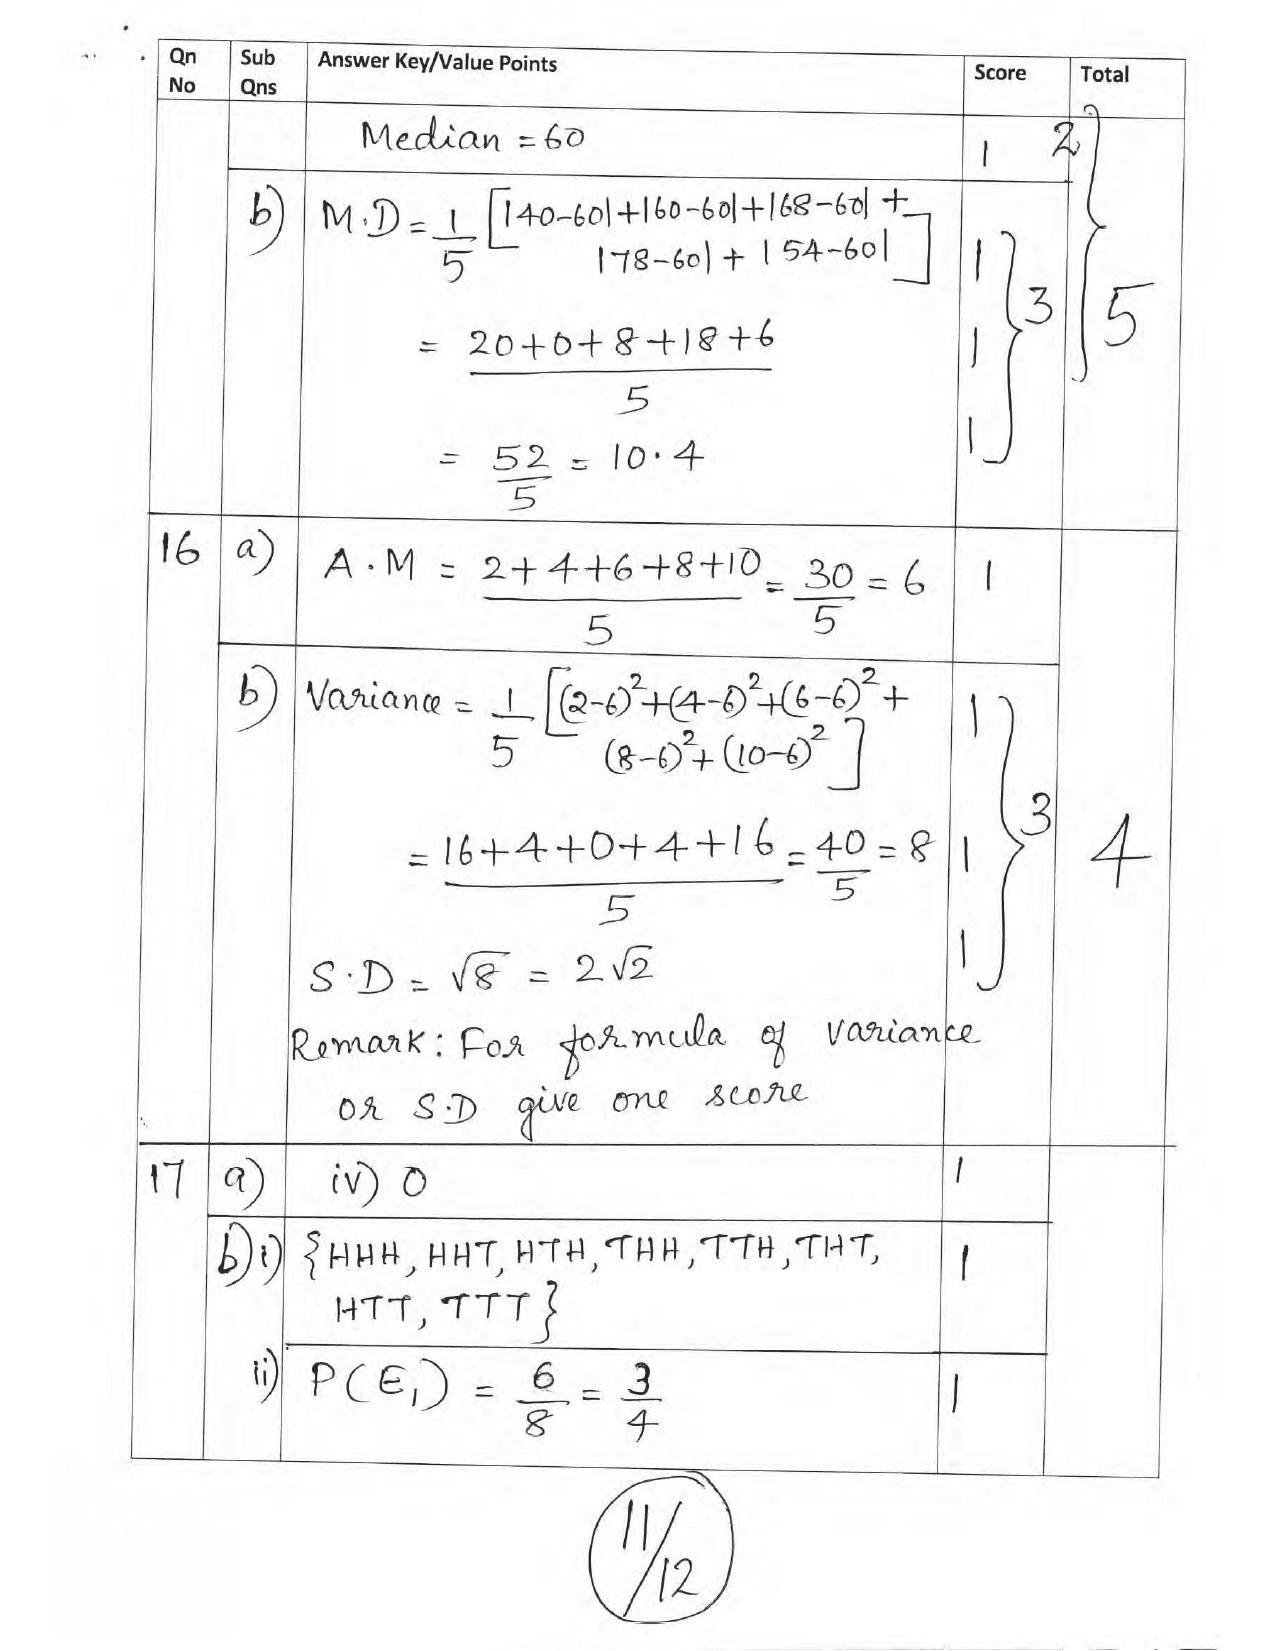 Qn No Sub Qns Answer Key/Value Points Score Total
Median = 60 1 2
b) M.D = 1/5 [|40-60|+|60-60|+|68-60| +
|78-60| + |54-60|] 1
= 20+0+8+18+6 / 5 1 3 5
= 52/5 = 10.4 1
16 a) A.M = 2+4+6+8+10 / 5 = 30/5 = 6 1
b) Variance = 1/5 [(2-6)²+(4-6)²+(6-6)²+ 1
(8-6)²+(10-6)²]
= 16+4+0+4+16 / 5 = 40/5 = 8 1 3 4
S.D = √8 = 2√2 1
Remark: For formula of variance
or S.D give one score
17 a) iv) 0 1
b) i) {HHH, HHT, HTH, THH, TTH, THT, 1
HTT, TTT}
ii) P(E₁) = 6/8 = 3/4 1
11/12